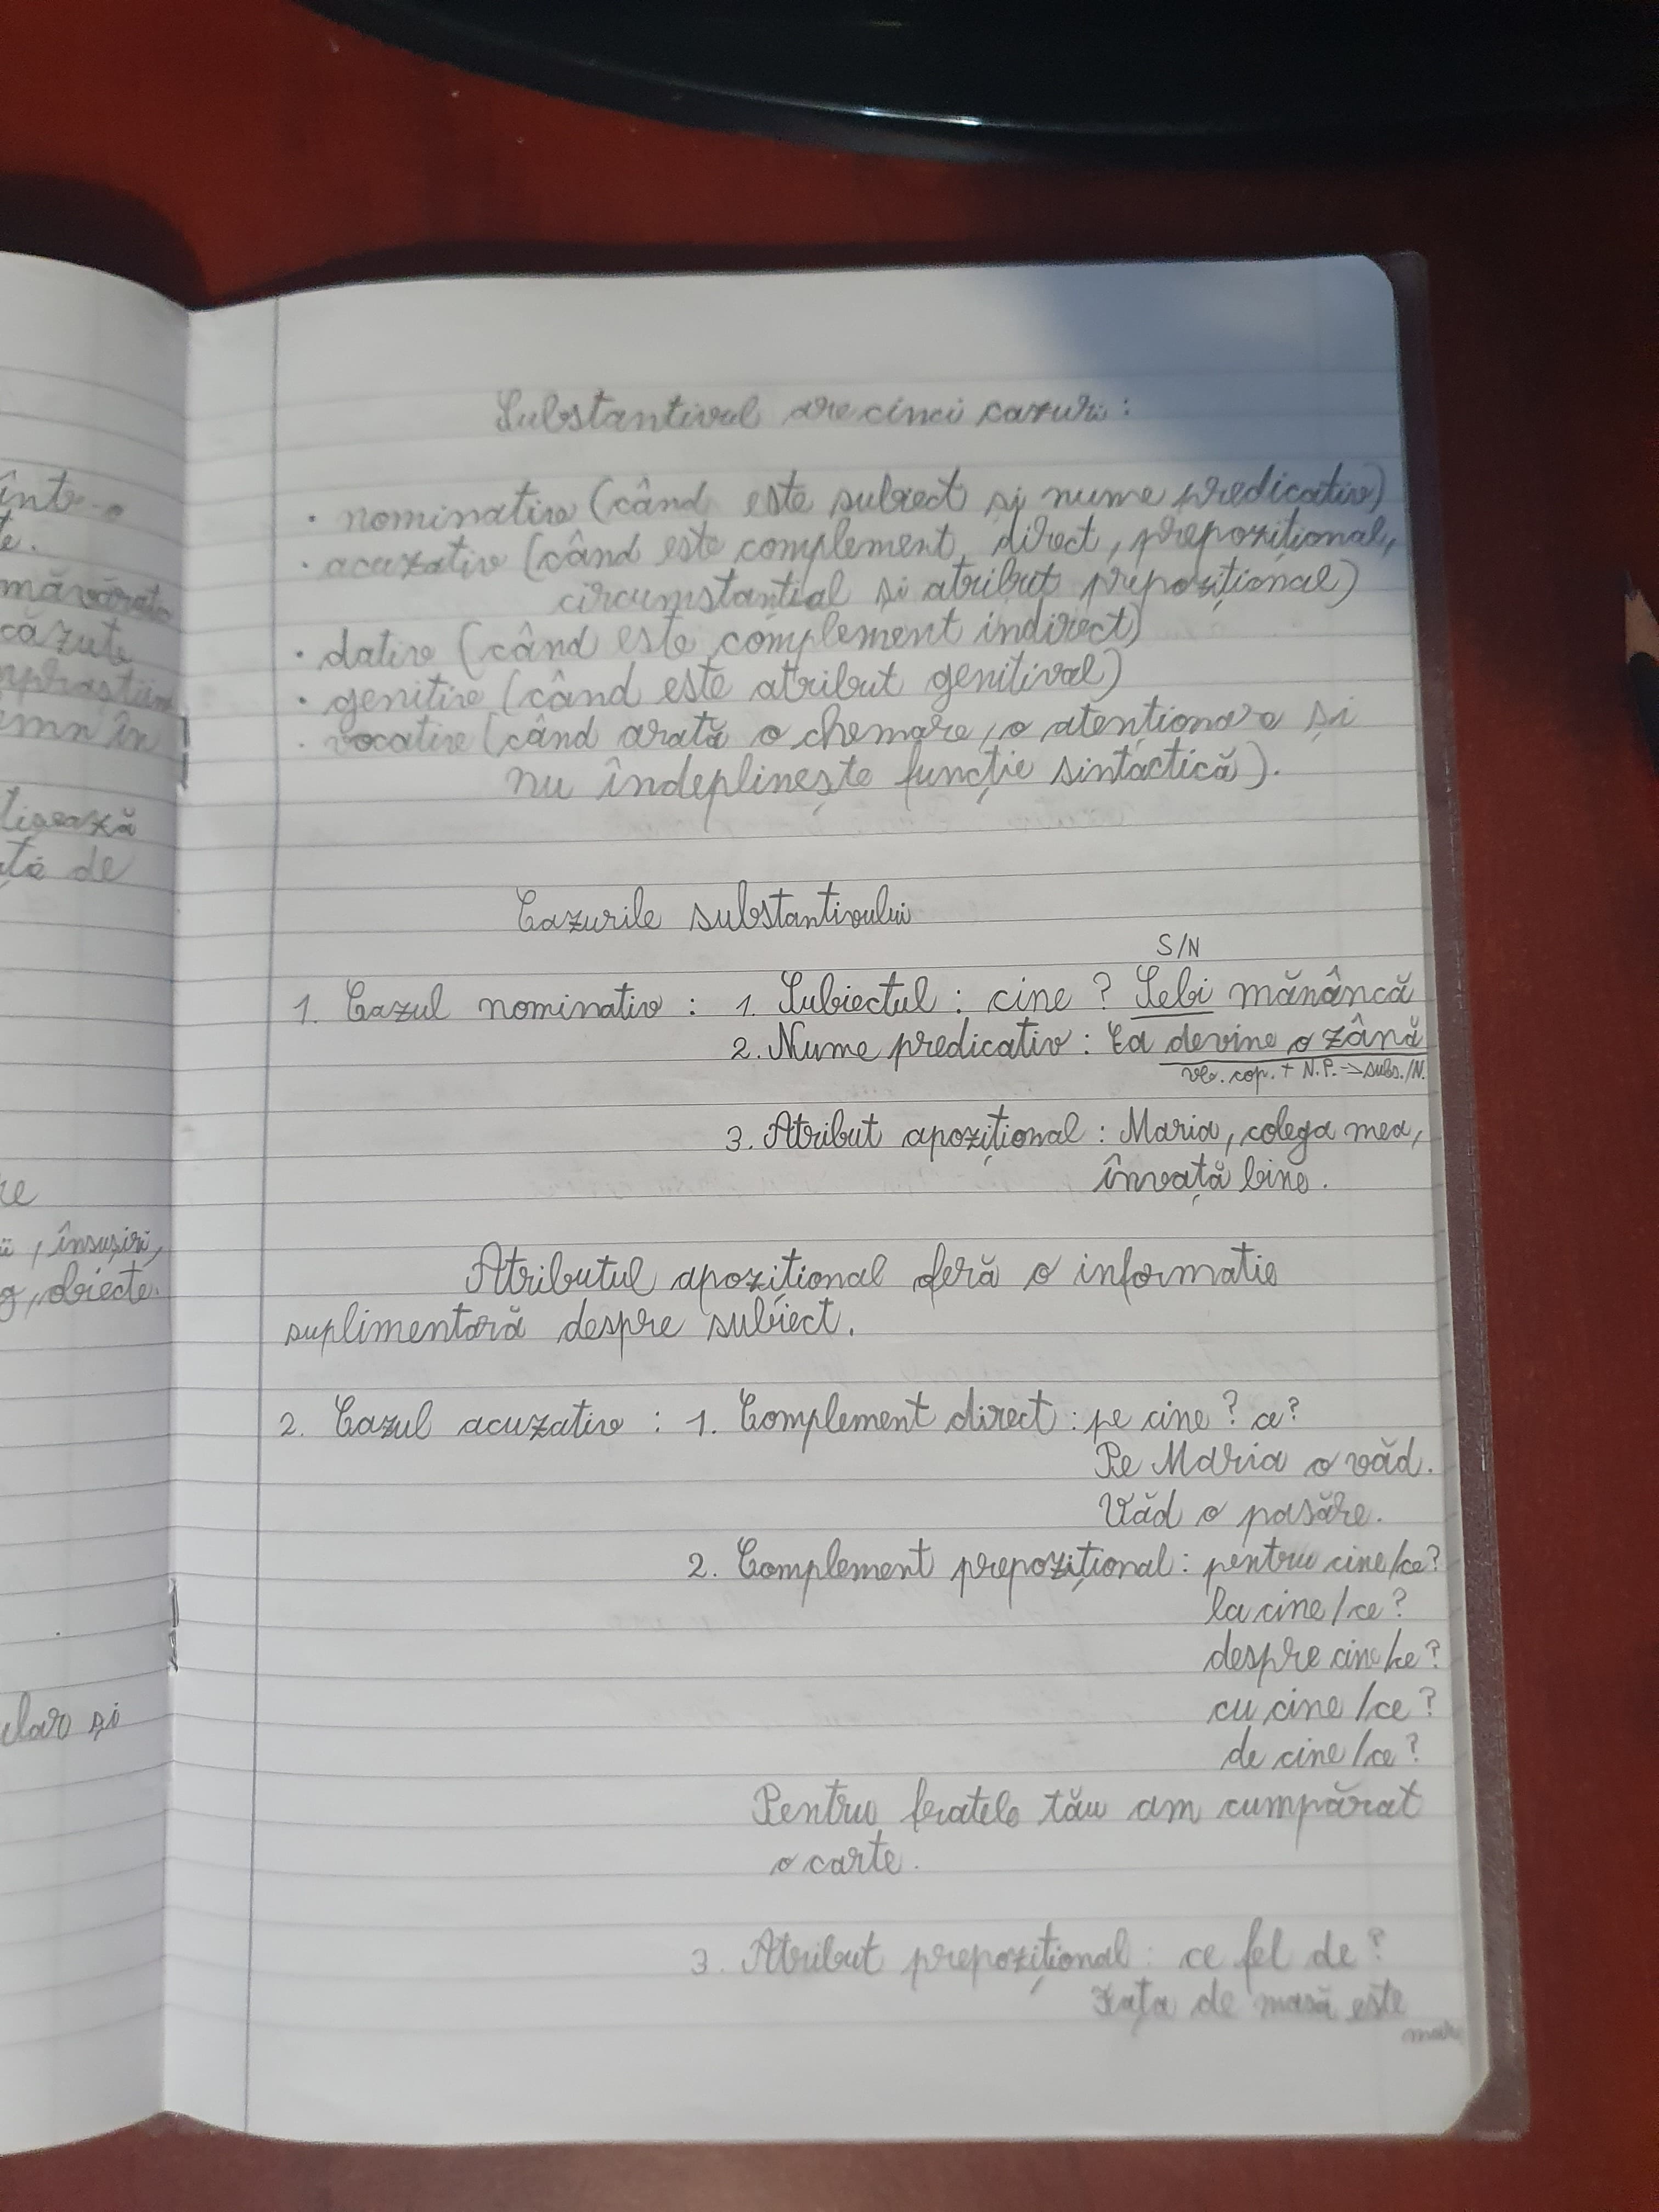 într-o
te.
măvărato
căzute
emn în
tizează
ată de
re
ii, însușiri,
g, obiecte.
ular și
Substantivul are cinci cazuri:
· nominativ (când este subiect și nume predicativ)
· acuzativ (când este complement direct, prepozițional,
circumstanțial și atribut prepozițional)
· dativ (când este complement indirect)
· genitiv (când este atribut genitival)
· vocativ (când arată o chemare, o atenționare și
nu îndeplinește funcție sintactică).
Cazurile substantivului
S/N
1. Cazul nominativ : 1. Subiectul : cine ? Sebi mănâncă
2. Nume predicativ : Ea devine o zână
vb. cop. + N.P. -> subs./N.
3. Atribut apozițional : Maria, colega mea,
învață bine.
Atributul apozițional oferă o informatie
suplimentară despre subiect.
2. Cazul acuzativ : 1. Complement direct : pe cine ? ce?
Pe Maria o văd.
Văd o pasăre.
2. Complement prepozițional : pentru cine/ce?
la cine/ce ?
despre cine/ce ?
cu cine/ce ?
de cine/ce ?
Pentru fratele tău am cumpărat
o carte.
3. Atribut prepozițional : ce fel de ?
Fața de masă este
mare